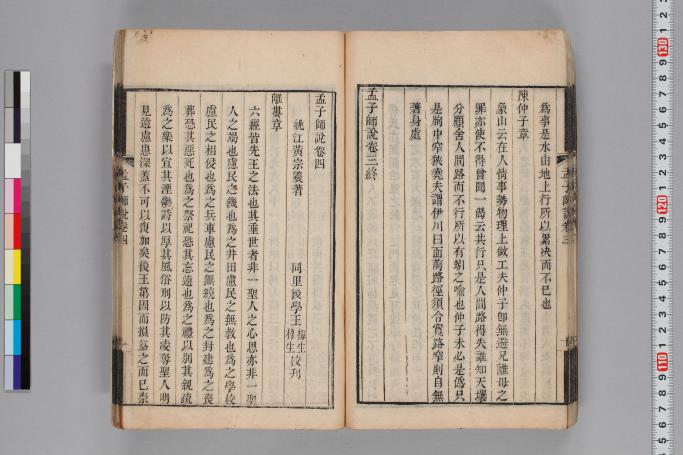 為事是水由地上行所以累決而不已也
陳仲子章
象山云在人情事勢物理上做工夫仲子即無避兄離母之
罪亦使不得曾聞一偈云共行只是人間路得失誰知天壤
分顧舍人間路而不行所以有蚓之喻也仲子未必是爲只
是胸中窄狹堯夫謂伊川曰面前路徑須令寬路窄則自無
著身處
孟子師說卷三終
孟子師說卷三
孟子師說卷四
姚江黃宗羲著 同里後學王 校刊
離婁章
六經皆先王之法也其垂世者非一聖人之心思亦非一聖
人之竭也慮民之饑也爲之井田慮民之無敎也爲之學校
慮民之相侵也爲之兵車慮民之無統也爲之封建爲之喪
葬恐其惡死也爲之祭祀恐其忘遠也爲之禮以別其親疏
爲之樂以宣其湮鬱詩以厚其風俗刑以防其凌奪聖人明
見遠慮患深蓋不可以復加矣後王第因而損益之而已奈
孟子師說卷四